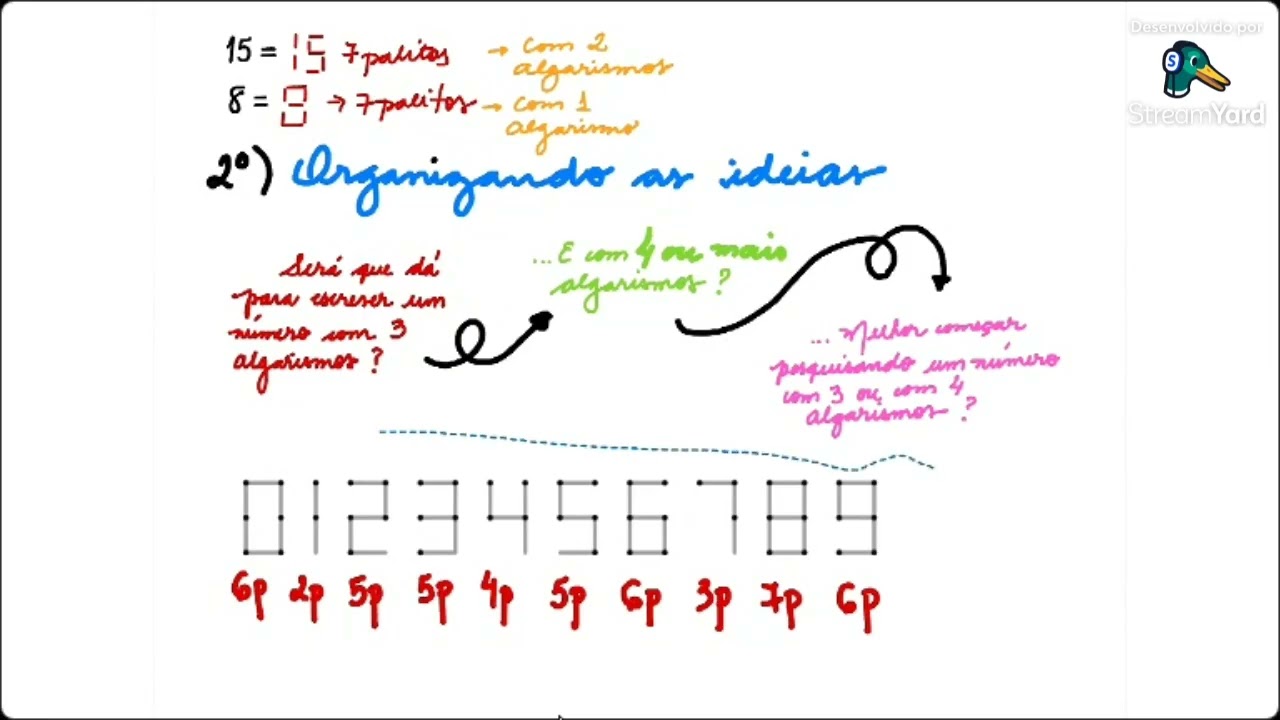 Desenvolvido por
StreamYard
15 = 15 7 palitos → com 2
algarismos
8 = 8 → 7 palitos → com 1
algarismo
2º) Organizando as ideias
Será que dá
para escrever um
número com 3
algarismos ?
... E com 4 ou mais
algarismos ?
... Melhor começar
pesquisando um número
com 3 ou com 4
algarismos ?
0 1 2 3 4 5 6 7 8 9
6p 2p 5p 5p 4p 5p 6p 3p 7p 6p